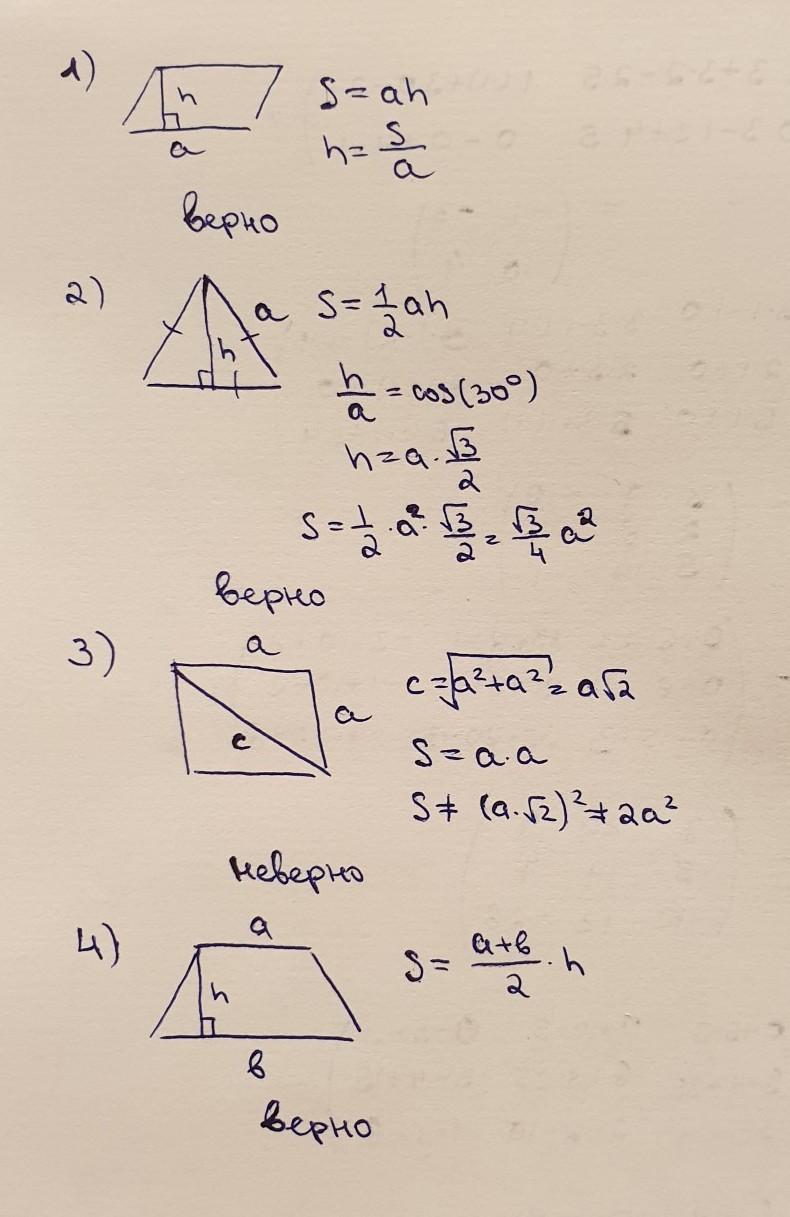 1)
h
a
S = ah
h = S/a
верно
2)
a
h
S = 1/2 ah
h/a = cos(30°)
h = a · √3/2
S = 1/2 · a² · √3/2 = √3/4 a²
верно
3)
a
a
c
c = √(a²+a²) = a√2
S = a·a
S ≠ (a·√2)² ≠ 2a²
неверно
4)
a
h
в
S = (a+в)/2 · h
верно